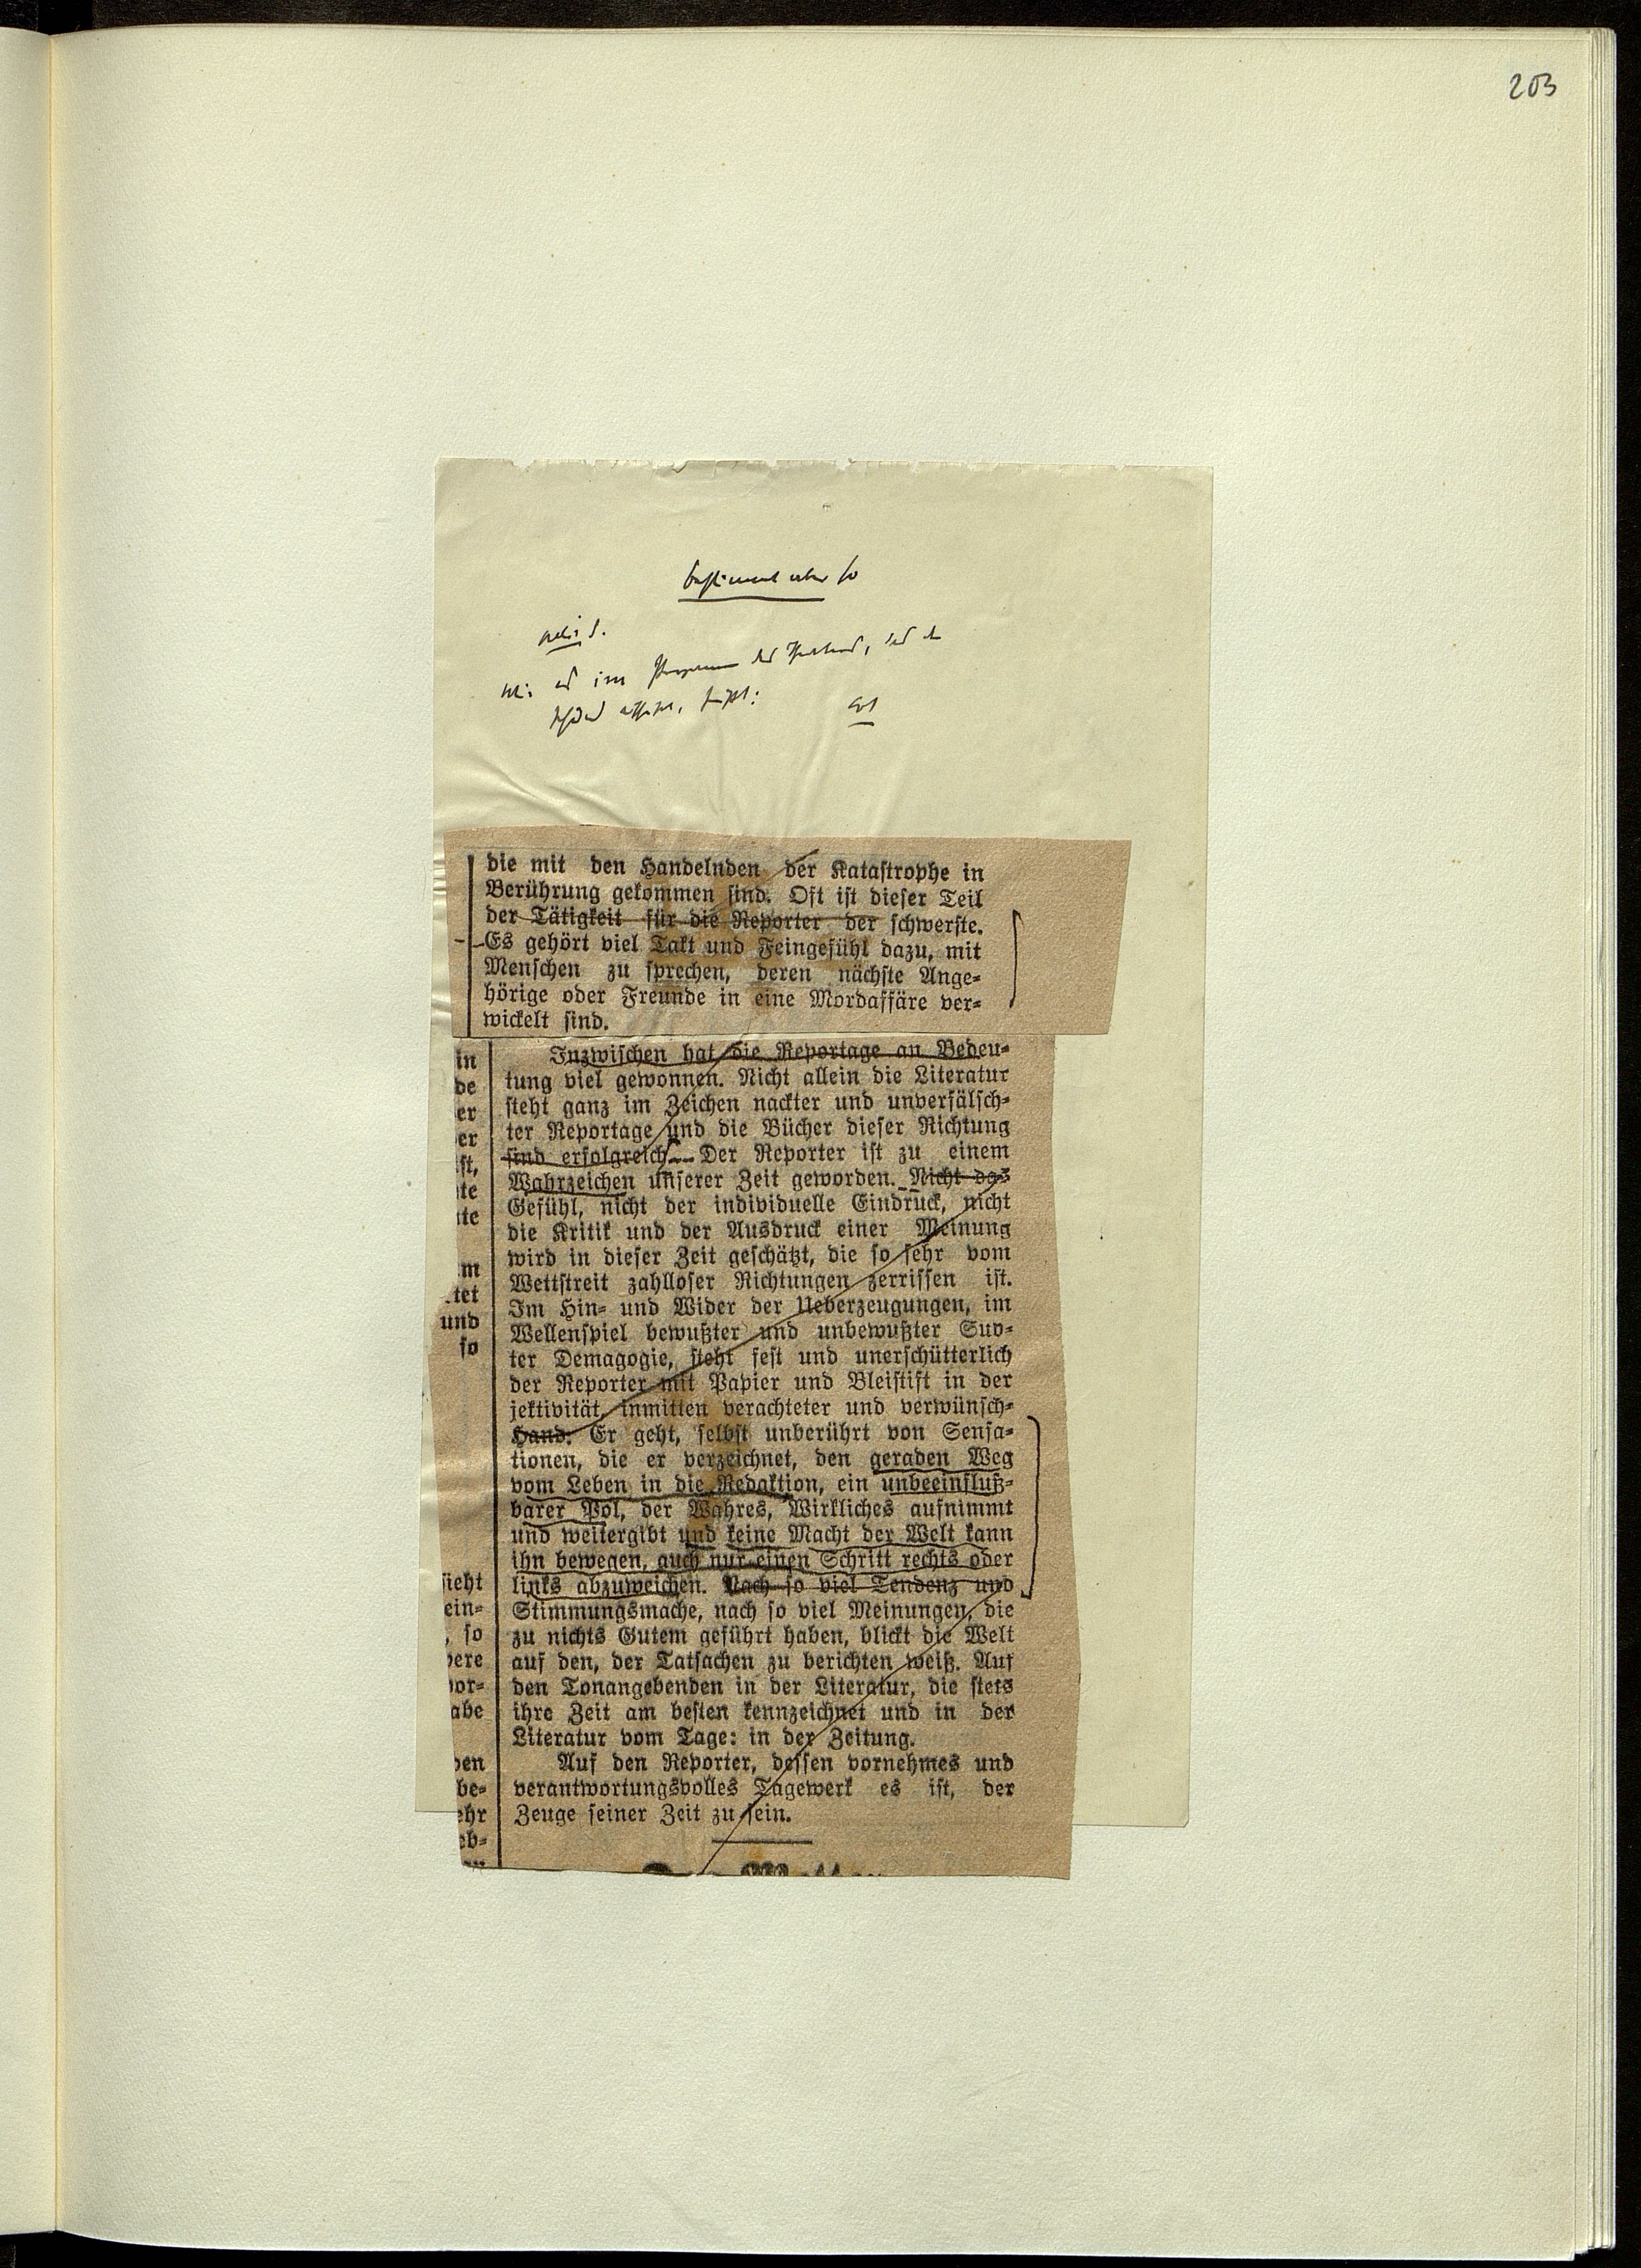 203
bestimmt aber so
die mit den Handelnden der Katastrophe in
Berührung gekommen sind. Oft ist dieser Teil
der Tätigkeit für die Reporter der schwerste.
Es gehört viel Takt und Feingefühl dazu, mit
Menschen zu sprechen, deren nächste Ange-
hörige oder Freunde in eine Mordaffäre ver-
wickelt sind.
Inzwischen hat die Reportage an Bedeu-
tung viel gewonnen. Nicht allein die Literatur
steht ganz im Zeichen nackter und unverfälsch-
ter Reportage und die Bücher dieser Richtung
sind erfolgreich. Der Reporter ist zu einem
Wahrzeichen unserer Zeit geworden. Nicht das
Gefühl, nicht der individuelle Eindruck, nicht
die Kritik und der Ausdruck einer Meinung
wird in dieser Zeit geschätzt, die so sehr vom
Wettstreit zahlloser Richtungen zerrissen ist.
Im Hin- und Wider der Ueberzeugungen, im
Wellenspiel bewußter und unbewußter Sub-
ter Demagogie, steht fest und unerschütterlich
der Reporter mit Papier und Bleistift in der
jektivität, inmitten verachteter und verwünsch-
Hand. Er geht, selbst unberührt von Sensa-
tionen, die er verzeichnet, den geraden Weg
vom Leben in die Redaktion, ein unbeeinfluß-
barer Pol, der Wahres, Wirkliches aufnimmt
und weitergibt und keine Macht der Welt kann
ihn bewegen, auch nur einen Schritt rechts oder
links abzuweichen. Nach so viel Tendenz und
Stimmungsmache, nach so viel Meinungen, die
zu nichts Gutem geführt haben, blickt die Welt
auf den, der Tatsachen zu berichten weiß. Auf
den Tonangebenden in der Literatur, die stets
ihre Zeit am besten kennzeichnet und in der
Literatur vom Tage: in der Zeitung.
Auf den Reporter, dessen vornehmes und
verantwortungsvolles Tagewerk es ist, der
Zeuge seiner Zeit zu sein.
in
de
er
er
ft,
te
te
m
tet
und
so
sieht
ein-
, so
vere
vor-
abe
den
be-
ehr
eb-